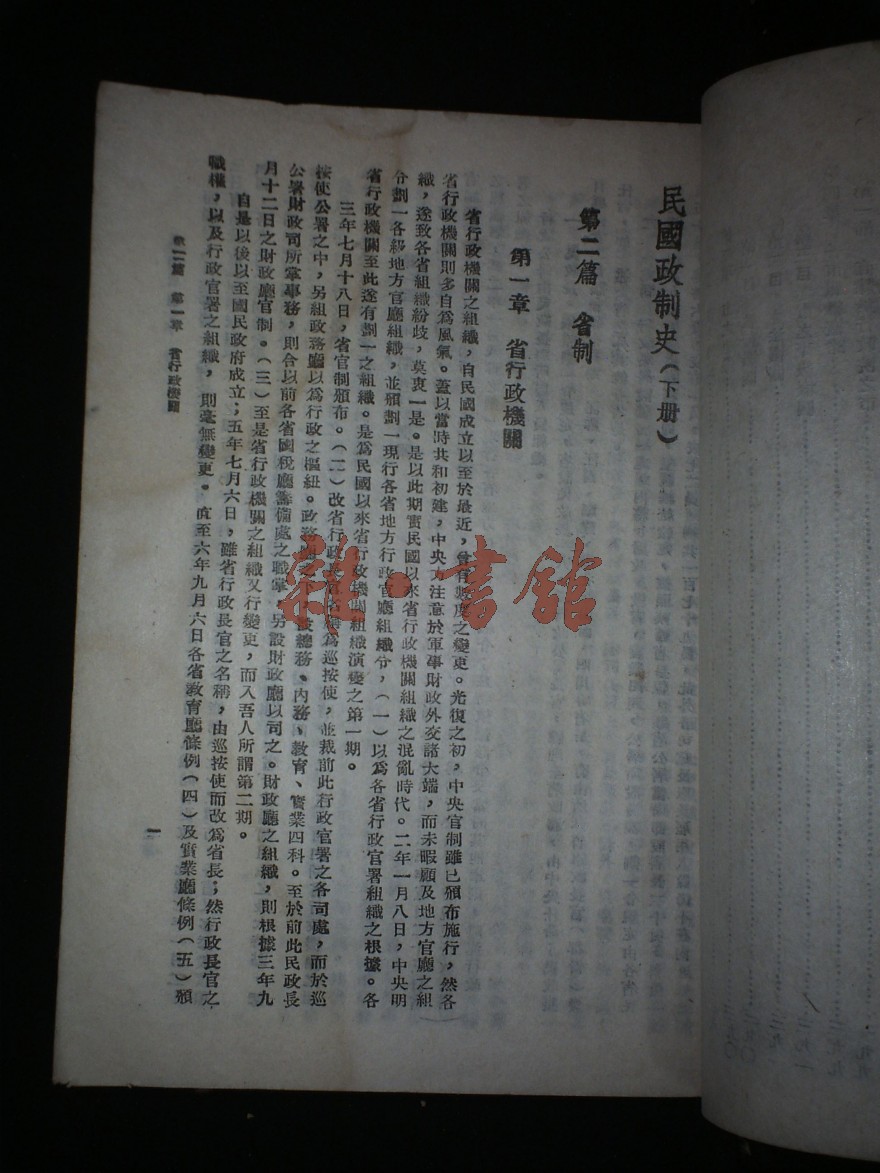 民國政制史(下册)
第二篇 省制
第一章 省行政機關
省行政機關之組織，自民國成立以至於最近，曾有數度之變更。光復之初，中央官制雖已頒布施行，然各
省行政機關則多自爲風氣。蓋以當時共和初建，中央方注意於軍事財政外交諸大端，而未暇顧及地方官廳之組
織，遂致各省組織紛歧，莫衷一是。是以此期實民國以來省行政機關組織之混亂時代。二年一月八日，中央明
令劃一各級地方官廳組織，並頒劃一現行各省地方行政官廳組織令，(一)以爲各省行政官署組織之根據。各
省行政機關至此遂有劃一之組織。是爲民國以來省行政機關組織演變之第一期。
三年七月十八日，省官制頒布。(二)改省行政長官名稱爲巡按使，並裁前此行政官署之各司處，而於巡
按使公署之中，另組政務廳以爲行政之樞紐。政務廳之下，設總務、內務、教育、實業四科。至於前此民政長
公署財政司所掌事務，則合以前各省國稅廳籌備處之職掌，另設財政廳以司之。財政廳之組織，則根據三年九
月十二日之財政廳官制。(三)至是省行政機關之組織又行變更，而入吾人所謂第二期。
自是以後以至國民政府成立；五年七月六日，雖省行政長官之名稱，由巡按使而改爲省長；然行政長官之
職權，以及行政官署之組織，則毫無變更。直至六年九月六日各省教育廳條例(四)及實業廳條例(五)頒
第二篇 第一章 省行政機關
一
雜·書館